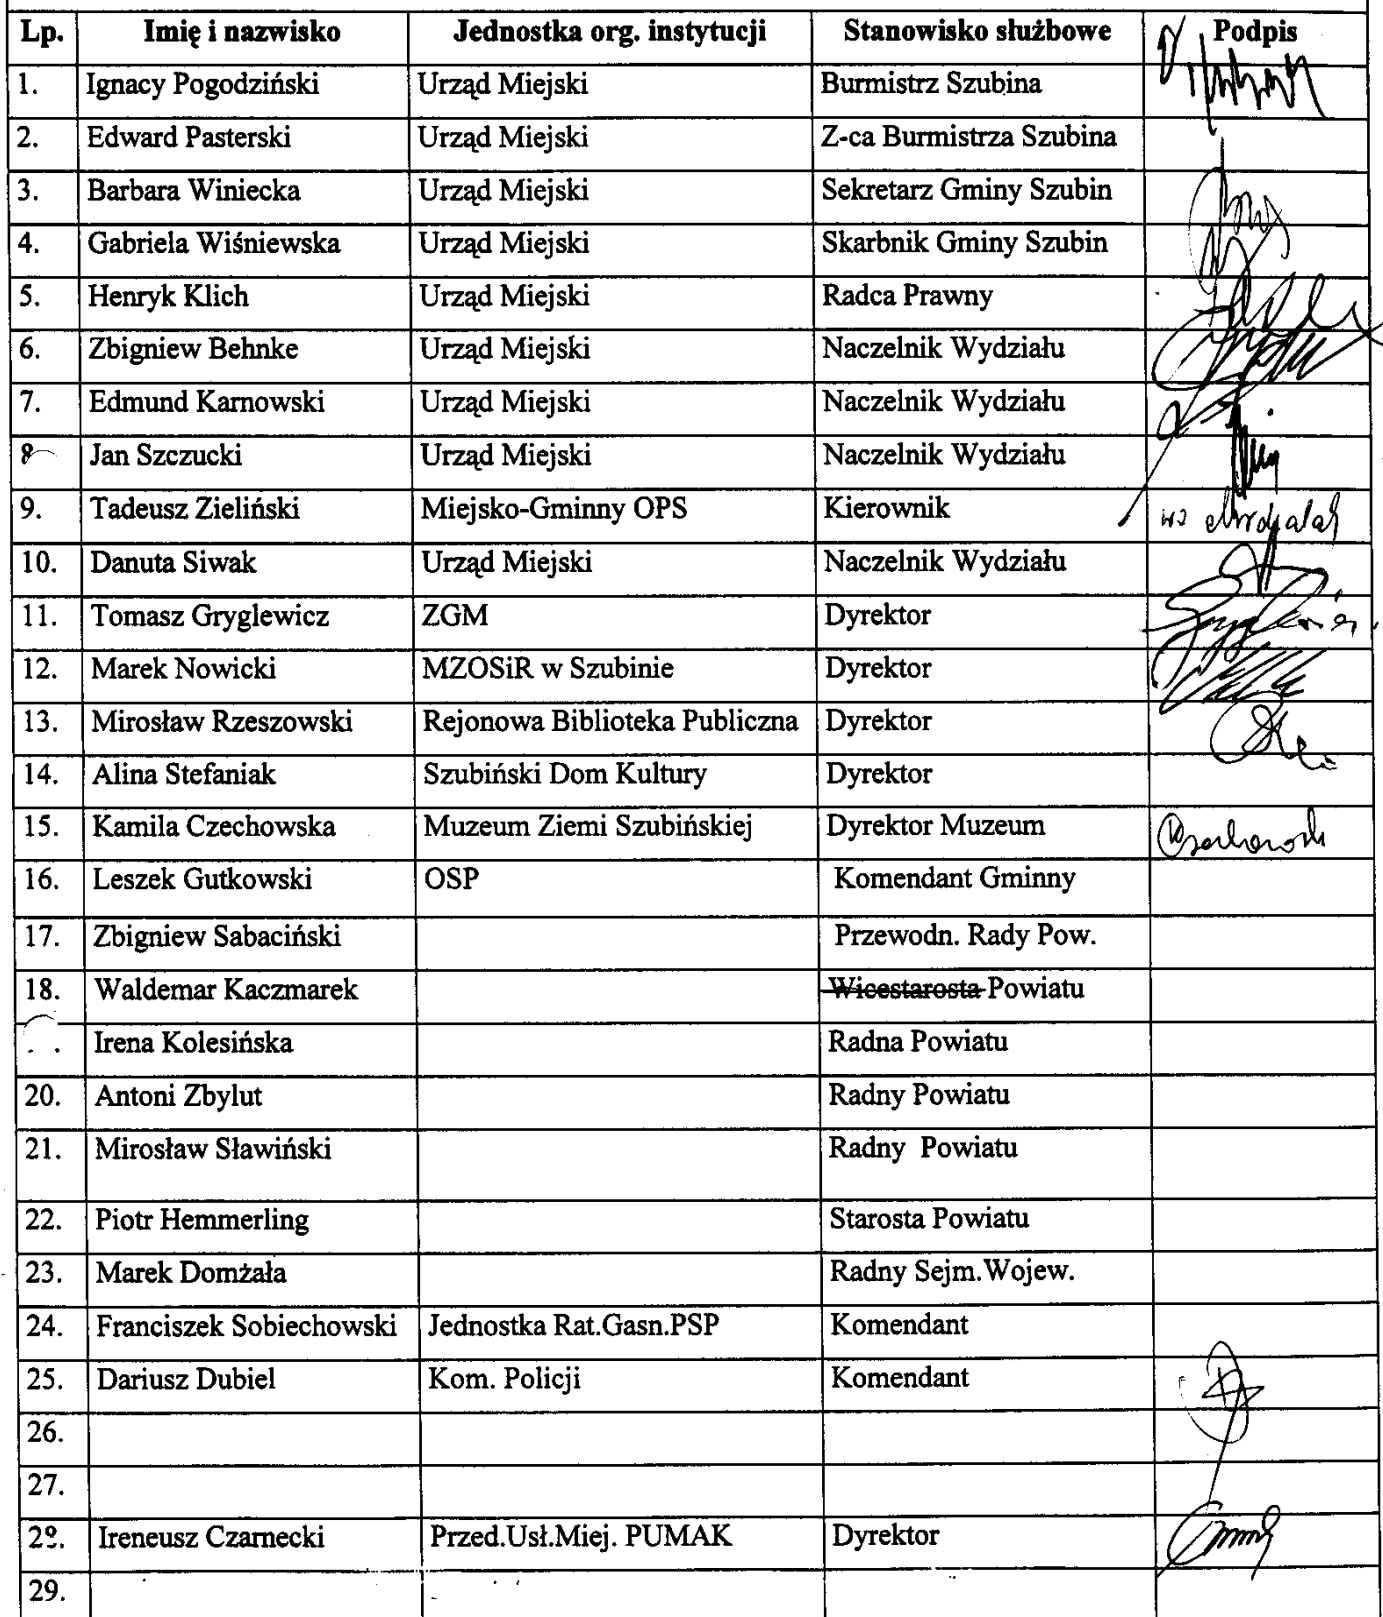 Lp. Imię i nazwisko Jednostka org. instytucji Stanowisko służbowe Podpis
1. Ignacy Pogodziński Urząd Miejski Burmistrz Szubina
2. Edward Pasterski Urząd Miejski Z-ca Burmistrza Szubina
3. Barbara Winiecka Urząd Miejski Sekretarz Gminy Szubin
4. Gabriela Wiśniewska Urząd Miejski Skarbnik Gminy Szubin
5. Henryk Klich Urząd Miejski Radca Prawny
6. Zbigniew Behnke Urząd Miejski Naczelnik Wydziału
7. Edmund Karnowski Urząd Miejski Naczelnik Wydziału
8 Jan Szczucki Urząd Miejski Naczelnik Wydziału
9. Tadeusz Zieliński Miejsko-Gminny OPS Kierownik
10. Danuta Siwak Urząd Miejski Naczelnik Wydziału
11. Tomasz Gryglewicz ZGM Dyrektor
12. Marek Nowicki MZOSiR w Szubinie Dyrektor
13. Mirosław Rzeszowski Rejonowa Biblioteka Publiczna Dyrektor
14. Alina Stefaniak Szubiński Dom Kultury Dyrektor
15. Kamila Czechowska Muzeum Ziemi Szubińskiej Dyrektor Muzeum
16. Leszek Gutkowski OSP Komendant Gminny
17. Zbigniew Sabaciński Przewodn. Rady Pow.
18. Waldemar Kaczmarek Wicestarosta Powiatu
Irena Kolesińska Radna Powiatu
20. Antoni Zbylut Radny Powiatu
21. Mirosław Sławiński Radny Powiatu
22. Piotr Hemmerling Starosta Powiatu
23. Marek Domżała Radny Sejm.Wojew.
24. Franciszek Sobiechowski Jednostka Rat.Gasn.PSP Komendant
25. Dariusz Dubiel Kom. Policji Komendant
26.
27.
28. Ireneusz Czarnecki Przed.Usł.Miej. PUMAK Dyrektor
29.